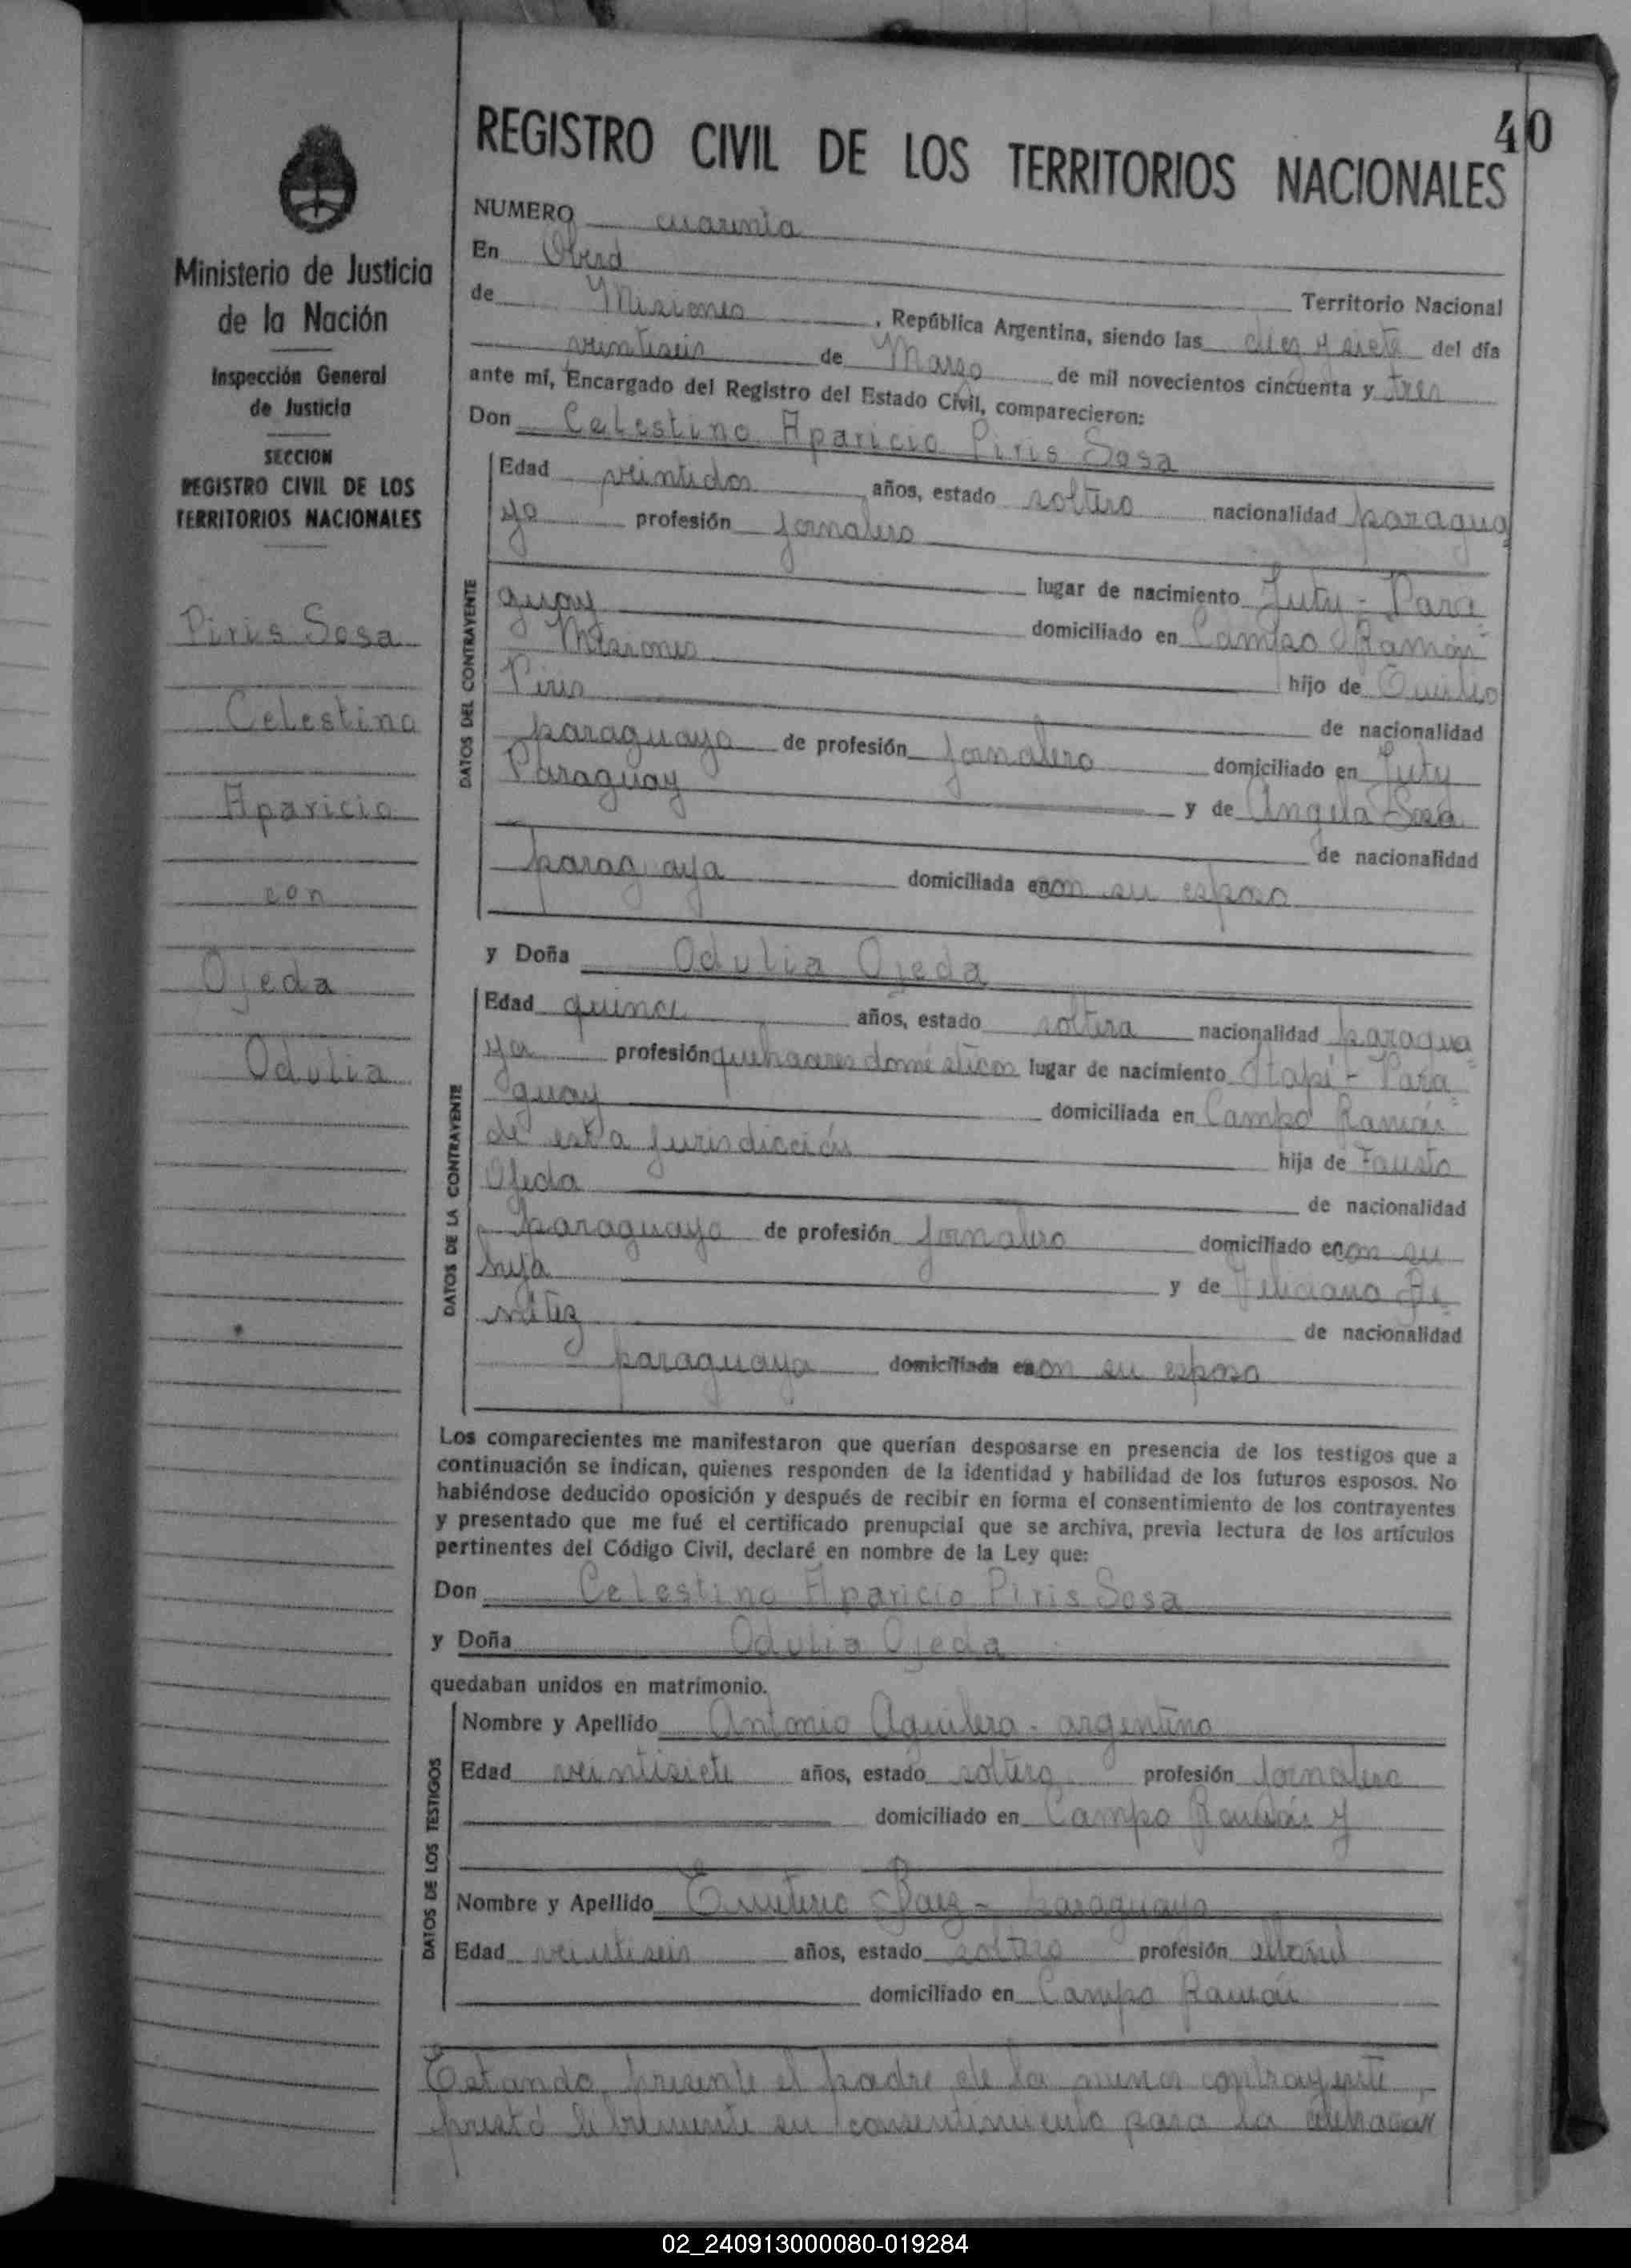 40
REGISTRO CIVIL DE LOS TERRITORIOS NACIONALES
Ministerio de Justicia
de la Nación
Inspección General
de Justicia
SECCION
REGISTRO CIVIL DE LOS
TERRITORIOS NACIONALES
Piris Sosa
Celestino
Aparicio
con
Ojeda
Odulia
NUMERO cuarenta
En Oberá
Territorio Nacional
de Misiones, República Argentina, siendo las diez y siete del día
veintiseis de Marzo de mil novecientos cincuenta y tres
ante mí, Encargado del Registro del Estado Civil, comparecieron:
Don Celestino Aparicio Piris Sosa
DATOS DEL CONTRAYENTE
Edad veintidos años, estado soltero nacionalidad paragua
yo profesión jornalero
lugar de nacimiento Juty - Para
guay domiciliado en Campo Ramón
Misiones hijo de
Piris de nacionalidad
paraguaya de profesión jornalero domiciliado en Juty
Paraguay y de Angela Sosa
de nacionalidad
paraguaya domiciliada con su esposo
y Doña Odulia Ojeda
DATOS DE LA CONTRAYENTE
Edad quince años, estado soltera nacionalidad paragua
ya profesión quehaceres domésticos lugar de nacimiento Itapé - Para
guay domiciliada en Campo Ramón
de esta jurisdicción hija de Fausto
Ojeda de nacionalidad
paraguaya de profesión jornalero domiciliado con su
hija y de Feliciana Be
nitez de nacionalidad
paraguaya domiciliada con su esposo
Los comparecientes me manifestaron que querían desposarse en presencia de los testigos que a
continuación se indican, quienes responden de la identidad y habilidad de los futuros esposos. No
habiéndose deducido oposición y después de recibir en forma el consentimiento de los contrayentes
y presentado que me fué el certificado prenupcial que se archiva, previa lectura de los artículos
pertinentes del Código Civil, declaré en nombre de la Ley que:
Don Celestino Aparicio Piris Sosa
y Doña Odulia Ojeda
quedaban unidos en matrimonio.
DATOS DE LOS TESTIGOS
Nombre y Apellido Antonio Aguilera - argentino
Edad veintisiete años, estado soltero profesión jornalero
domiciliado en Campo Ramón y
Nombre y Apellido Emeterio Baez - paraguayo
Edad veintiseis años, estado soltero profesión albañil
domiciliado en Campo Ramón
Estando presente el padre de la menor contrayente,
prestó libremente su consentimiento para la celebración
02_240913000080-019284